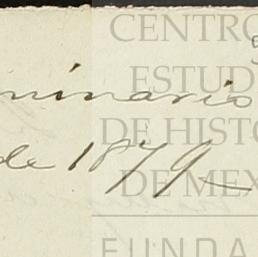 CENTRO
ESTUD
minario
DE HISTO
de 1879
DE MEX
FUNDA